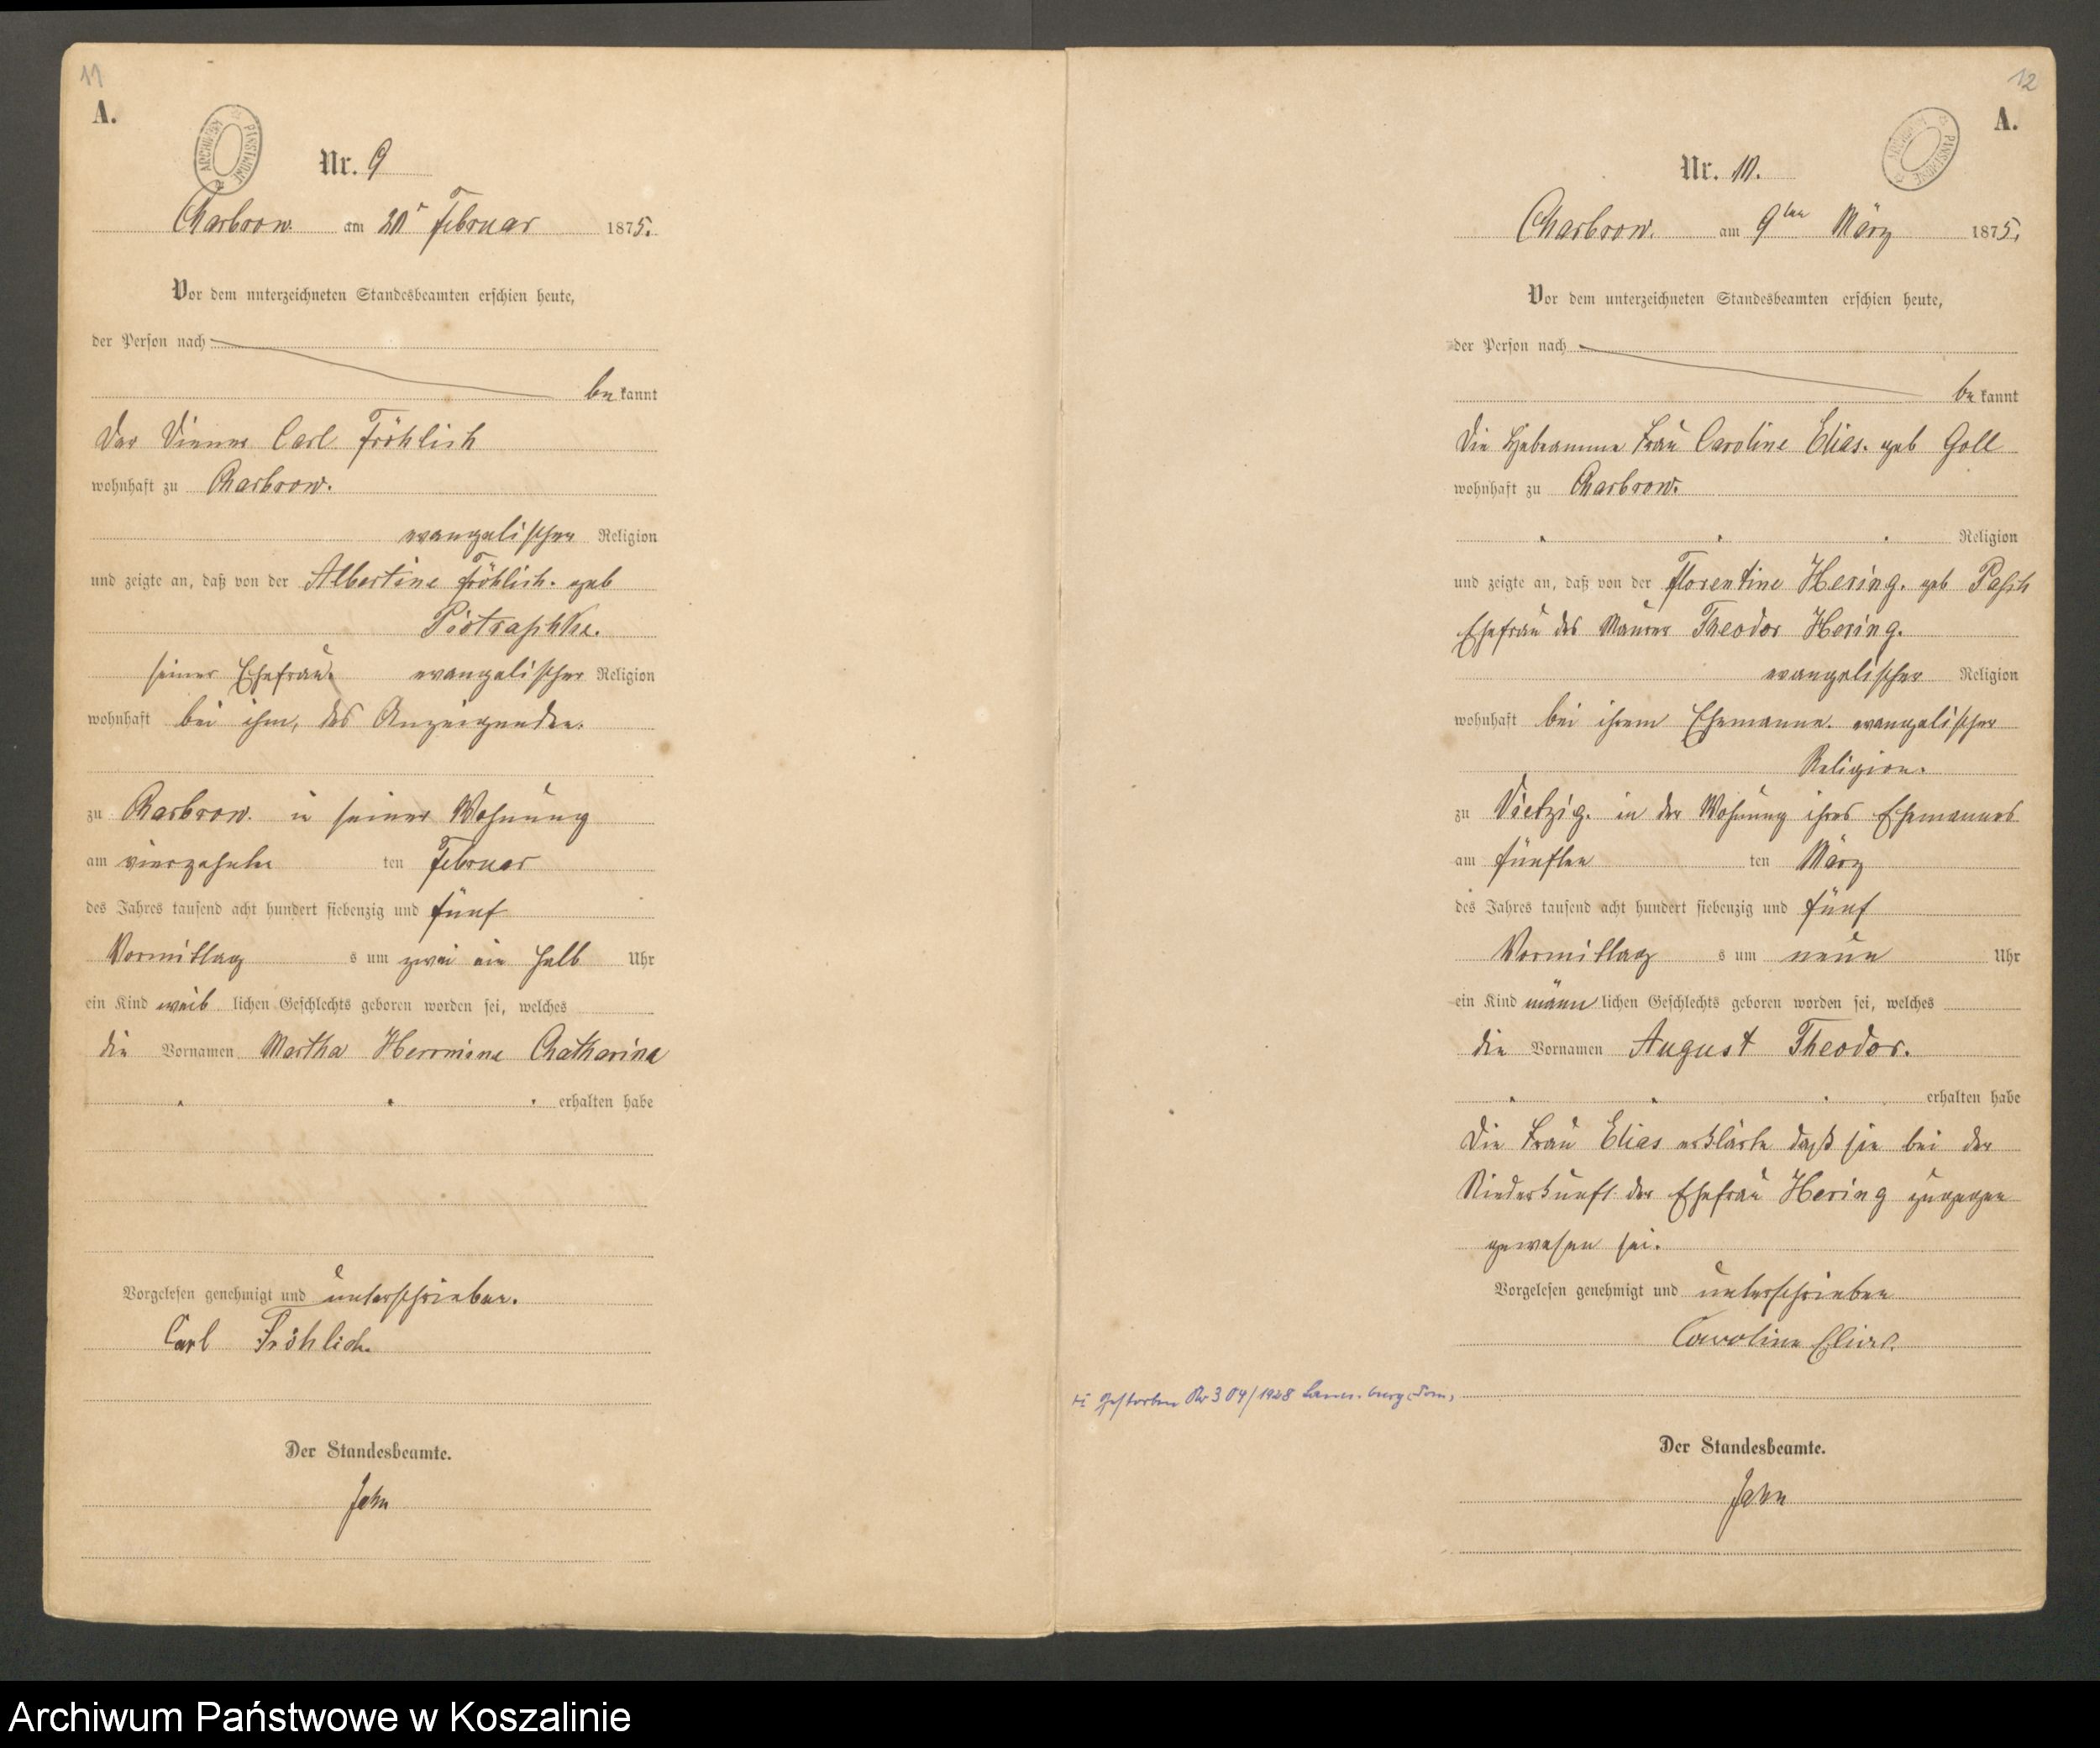 11
A.
ARCHIWUM PAŃSTWOWE
Nr. 9
Charbrow. am 20n Februar 1875.
Vor dem unterzeichneten Standesbeamten erschien heute,
der Person nach
bekannt
Der Diener Carl Fröhlich
wohnhaft zu Charbrow.
evangelischer Religion
und zeigte an, daß von der Albertine Fröhlich. geb
Piotraschke.
seiner Ehefrau. evangelischer Religion
wohnhaft bei ihm, des Anzeigenden.
zu Charbrow. in seiner Wohnung
am vierzehnten Februar
des Jahres tausend acht hundert siebenzig und fünf
Vormittags um zwei ein halb Uhr
ein Kind weiblichen Geschlechts geboren worden sei, welches
die Vornamen Martha Hermine Chatharina
erhalten habe
Vorgelesen genehmigt und unterschrieben.
Carl Fröhlich.
Der Standesbeamte.
Jahn
12
A.
ARCHIWUM PAŃSTWOWE
Nr. 10.
Charbrow. am 9ten März 1875.
Vor dem unterzeichneten Standesbeamten erschien heute,
der Person nach
bekannt
Die Hebeamme Frau Caroline Elias. geb Goll
wohnhaft zu Charbrow.
Religion
und zeigte an, daß von der Florentine Hering. geb Pasch
Ehefrau des Maurer Theodor Hering.
evangelischer Religion
wohnhaft bei ihrem Ehemanne. evangelischer
Religion.
zu Vietzig. in der Wohnung ihres Ehemannes
am fünften ten März
des Jahres tausend acht hundert siebenzig und fünf
Vormittags um neun Uhr
ein Kind männlichen Geschlechts geboren worden sei, welches
die Vornamen August Theodor.
erhalten habe
Die Frau Elias erklärte daß sie bei der
Niederkunft der Ehefrau Hering zugegen
gewesen sei.
Vorgelesen genehmigt und unterschrieben
Caroline Elias.
Gestorben Nr 304/1928 Lauenburg Pom.
Der Standesbeamte.
Jahn
Archiwum Państwowe w Koszalinie